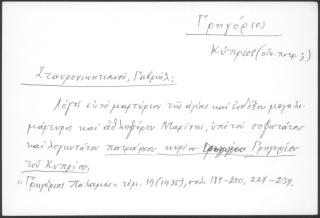 Γρηγόριος
Κύπριος (οἰκ. πατρ. ;)
Σταυρονικητιανοῦ, Γαβριήλ:
Λόγος εἰς τὸ μαρτύριον τῆς ἁγίας καὶ ἐνδόξου μεγαλο-
μάρτυρος καὶ ἀθληφόρου Μαρίνης, ὑπὸ τοῦ σοφωτάτου
καὶ λογιωτάτου πατριάρχου κυρίου Γρηγορίου
τοῦ Κυπρίου.
"Γρηγόριος Παλαμᾶς" τόμ. 19 (1935), σελ. 189-200, 227-239.